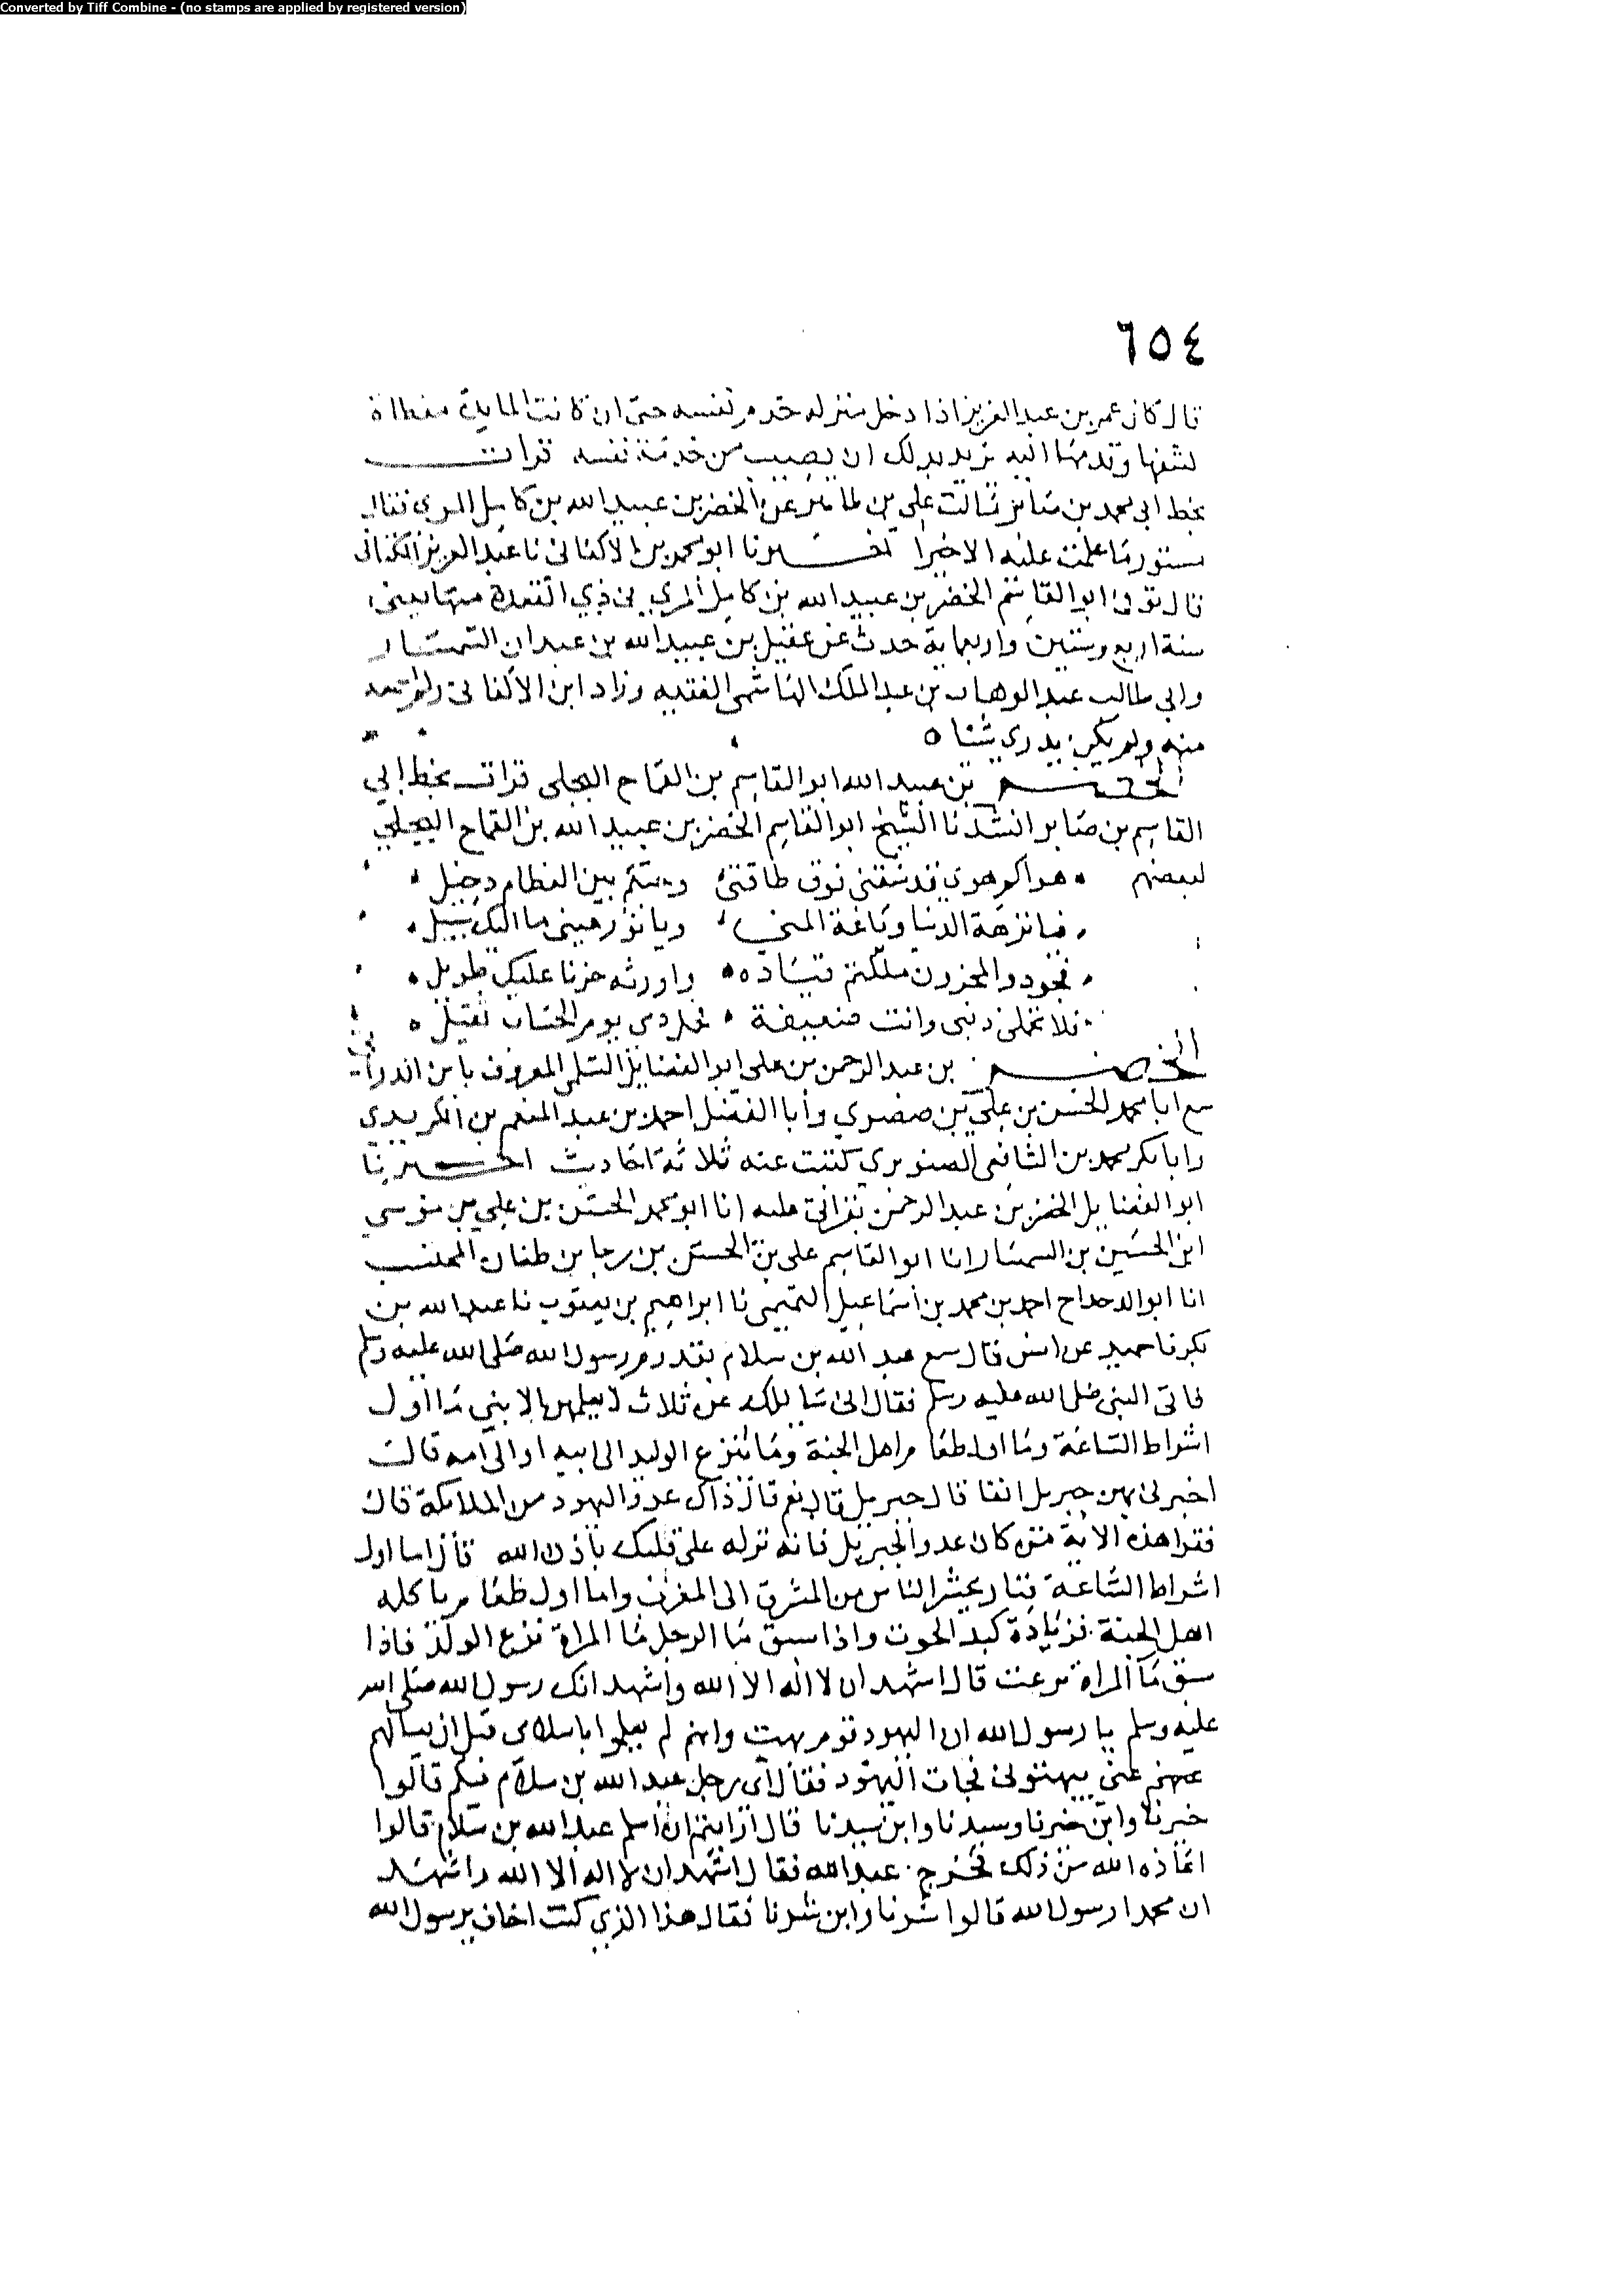 Converted by Tiff Combine - (no stamps are applied by registered version)
٦٥٤
قال كان عمر بن عبد العزيز اذا دخل منزله خدم نفسه حتى ان كانت المايدة مغطاة
كشفها وقدمها اليه يريد بذلك ان يصيب من خدمة نفسه قرات
بخط ابي محمد بن صابر سالت علي بن طاهر عن الخضر بن عبيد الله بن كامل المري فقال
مستور ما علمت عليه الا خيرا اخبرنا ابو محمد بن الاكفاني نا عبد العزيز الكتاني
قال توفي ابو القاسم الخضر بن عبيد الله بن كامل المري في ذي القعدة منها يعني
سنة اربع وستين واربعماية حدث عن عقيل بن عبيد الله بن عبدان الصفار
وابي طالب عبد الوهاب بن عبد الملك الهاشمي الفقيه وزاد ابن الاكفاني ولم
منه ولم يكن يدري شيئا ه
الخضر بن عبيد الله ابو القاسم بن القماح البجلي قرات بخط ابي
القاسم بن صابر انشدنا الشيخ ابو القاسم الخضر بن عبيد الله بن القماح البجلي
لبعضهم هواكم هوى قد شفني فوق طاقتي وسقم بين العظام دخيل
فيا نزهة الدنيا وياغة المنى ويا نور عيني ما اليك سبيل
فجودوا لمحزون ملكتم قياده واورثه حزنا عليك طويل
فلا تحملي ذنبي وانت ضعيفة فحمل دمي يوم الحساب ثقيل ه
الخضر بن عبد الرحمن بن علي ابو الفضايل السلمي المعروف بابن
سمع ابا محمد الحسن بن علي بن صصرى وابا الفضل احمد بن عبد المنعم بن الكريدي
وابا بكر محمد بن الشافعي الصنوبري كتبت عنه ثلاثة احاديث اخبرنا
ابو الفضايل الخضر بن عبد الرحمن بقراتي عليه انا ابو محمد الحسن بن علي بن موسى
ابن الحسين بن السمسار انا ابو القاسم علي بن الحسن بن رجا بن طعان المحتسب
انا ابو الدحداح احمد بن محمد بن اسماعيل التميمي نا ابراهيم بن يعقوب نا عبد الله بن
بكر نا حميد عن انس قال سمع عبد الله بن سلام بقدوم رسول الله صلى الله عليه وسلم
فاتى النبي صلى الله عليه وسلم فقال اني سايلك عن ثلاث لا يعلمهن الا نبي ما اول
اشراط الساعة وما اول طعام اهل الجنة وما ينزع الولد الى ابيه او الى امه قال
اخبرني بهن جبريل انفا قال جبريل قال نعم قال ذاك عدو اليهود من الملائكة قال
فقرا هذه الاية من كان عدوا لجبريل فانه نزله على قلبك باذن الله قال اما اول
اشراط الساعة فنار تحشر الناس من المشرق الى المغرب واما اول طعام ياكله
اهل الجنة فزيادة كبد الحوت واذا سبق ما الرجل ما المراة نزع الولد فاذا
سبق ما المراة نزعت قال اشهد ان لا اله الا الله واشهد انك رسول الله صلى الله
عليه وسلم يا رسول الله ان اليهود قوم بهت وانهم لم يعلموا باسلامي قبل ان تسالهم
عنهم عني بهتوني فجات اليهود فقال اي رجل عبد الله بن سلام فيكم قالوا
خيرنا وابن خيرنا وسيدنا وابن سيدنا قال ارايتم ان اسلم عبد الله بن سلام قالوا
اعاذه الله من ذلك فخرج عبد الله فقال اشهد ان لا اله الا الله واشهد
ان محمدا رسول الله قالوا شرنا وابن شرنا فقال هذا الذي كنت اخاف يرسول الله